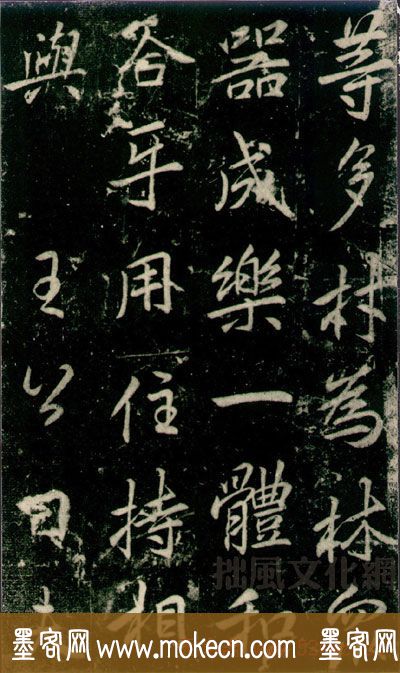 等多材為林眾
器成樂一體和
合牙用住持相
與 王公曰
拙風文化網
墨客网 www.mokecn.com 墨客网